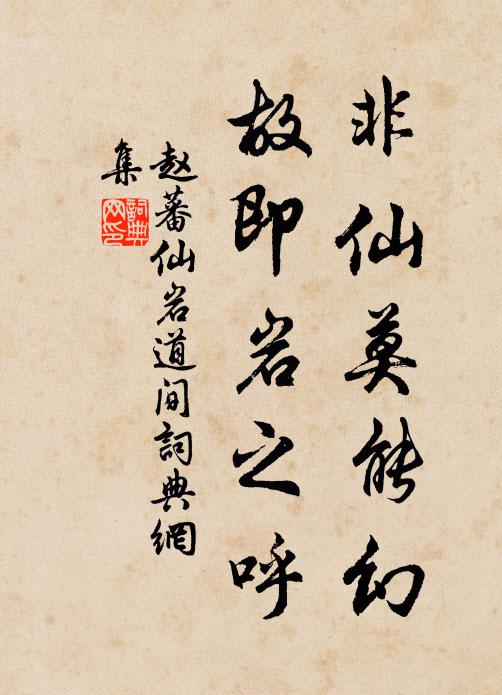 非仙莫能幻
故即岩之呼
赵蕃仙岩道间詞典網
集
詞典網印